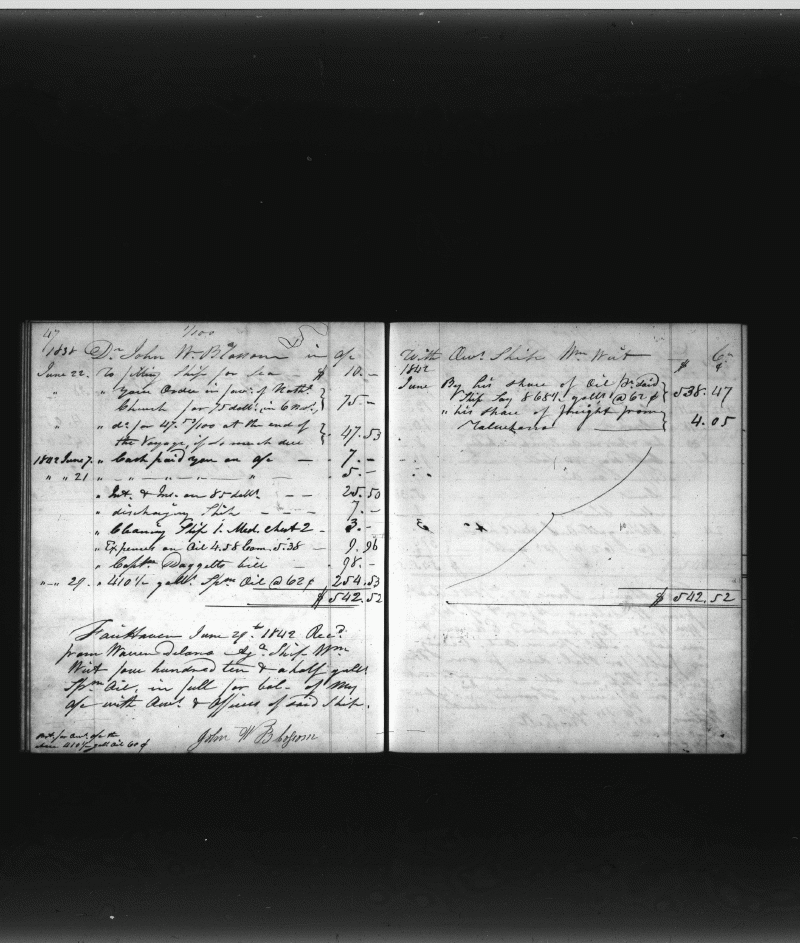 47
1/100
1838 Dr John W. Blossom in a/c
June 22. To fitting Ship for Sea — $ 10. –
" " your Order in favr. of Nathl.
Church for 75 dolls. (in 6 Mos.) 75. –
" " do. for 47.53/100 at the end of
the Voyage, if so much due 47.53
1842 June 7. " Cash paid you on a/c – 7. –
" " 21 " – " – " – " 5. –
" Int. & Ins. on 85 dolls. – – 25.50
" discharging Ship – – – 7. –
" Cleaning Ship 1. Med. chest 2 – 3. –
" Expenses on Oil 4.58 Com. 5.38 – 9.96
" Captn. Daggetts bill – 98. –
" – " 29. " 410½ galls. Spm. Oil @ 62¢ 254.53
$ 542.52
Fairhaven June 29th. 1842 Recd.
from Warren Delano Agt. Ship Wm
Wirt four hundred ten & a half galls
Spm Oil, in full for bal– of my
a/c with Own. & Officers of said Ship.
John W Blossom
410½ gall Oil 60¢
With Own. Ship Wm Wirt — Cr
1842 $ ¢
June By his share of Oil pr. said
Ship Say 868½ galls @ 62¢ 538.47
" his share of freight from
Talcahuano 4.05
$ 542.52